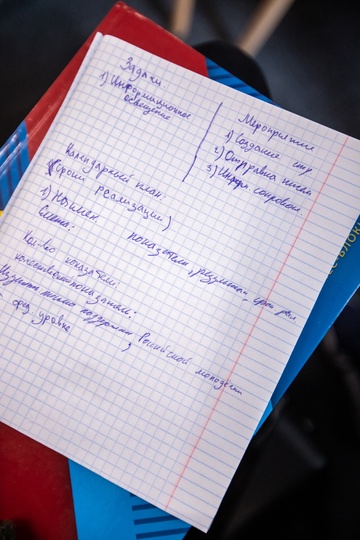 Задачи
1) Информационное
освещение
Мероприятия
1) Создание стр
2) Отправка писем
3) Информ. сопровожд.
Календарный план.
(сроки реализации)
1) Наимен. показатели, результ. срок реал.
Смета.
Кол-во показатели.
качественные показатели.
письмо поддержки Российской молодежи
фед уровне
-БЛОК